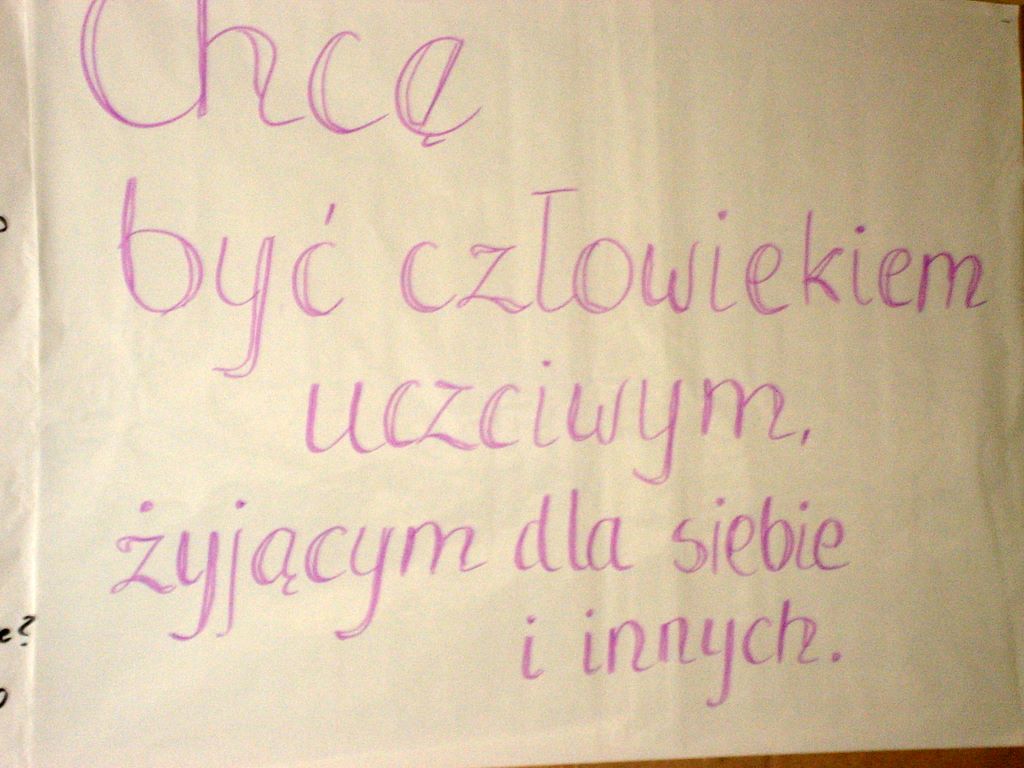 Chcę
być człowiekiem
uczciwym,
żyjącym dla siebie
i innych.